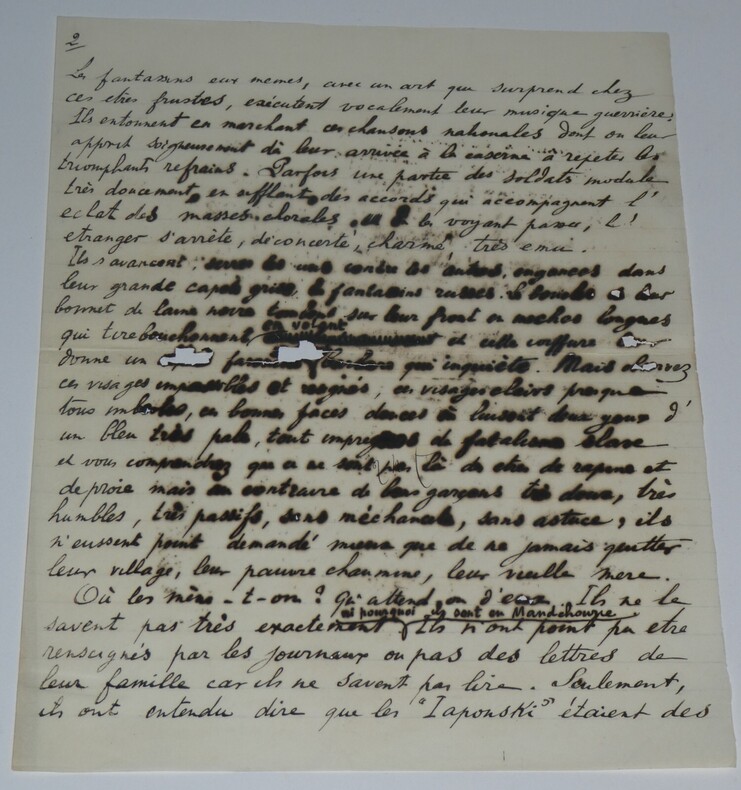 2
Les fantassins eux memes, avec un art qui surprend chez
ces etres frustes, exécutent vocalement leur musique guerrière.
Ils entonnent en marchant ces chansons nationales dont on leur
apprit soigneusement dès leur arrivée à la caserne à répeter les
triomphants refrains. Parfois une partie des soldats module
très doucement, en sifflant, des accords qui accompagnent l'
eclat des masses chorales, les voyant passer, l'
etranger s'arrète, déconcerté, charmé, très emu.
Ils s'avancent, les uns contre les autres, engoncés dans
leur grande capote grise, fantassins russes. Le
bonnet de laine noire sur leur front en meches longues
en volant
qui tirebouchonnent et cette coiffure
donne un qui inquiète. Mais observez
ces visages impassibles et resignés, ces visages clairs presque
tous imberbes, en bonnes faces douces où luisent deux yeux d'
un bleu très pale, tout de fatalisme slave
et vous comprendrez que ce ne sont pas là des etres de rapine et
de proie mais au contraire de bons garçons très doux, très
humbles, très passifs, sans méchanceté, sans astuce; ils
n'eussent point demandé mieux que de ne jamais quitter
leur village, leur pauvre chaumine, leur vieille mere.
Où les mène-t-on? Qu'attend-on d'eux. Ils ne le
ni pourquoi ils sont en Mandchourie
savent pas très exactement Ils n'ont point pu etre
renseignés par les journaux ou pas des lettres de
leur famille car ils ne savent pas lire. Seulement,
ils ont entendu dire que les "Iaponski" étaient des